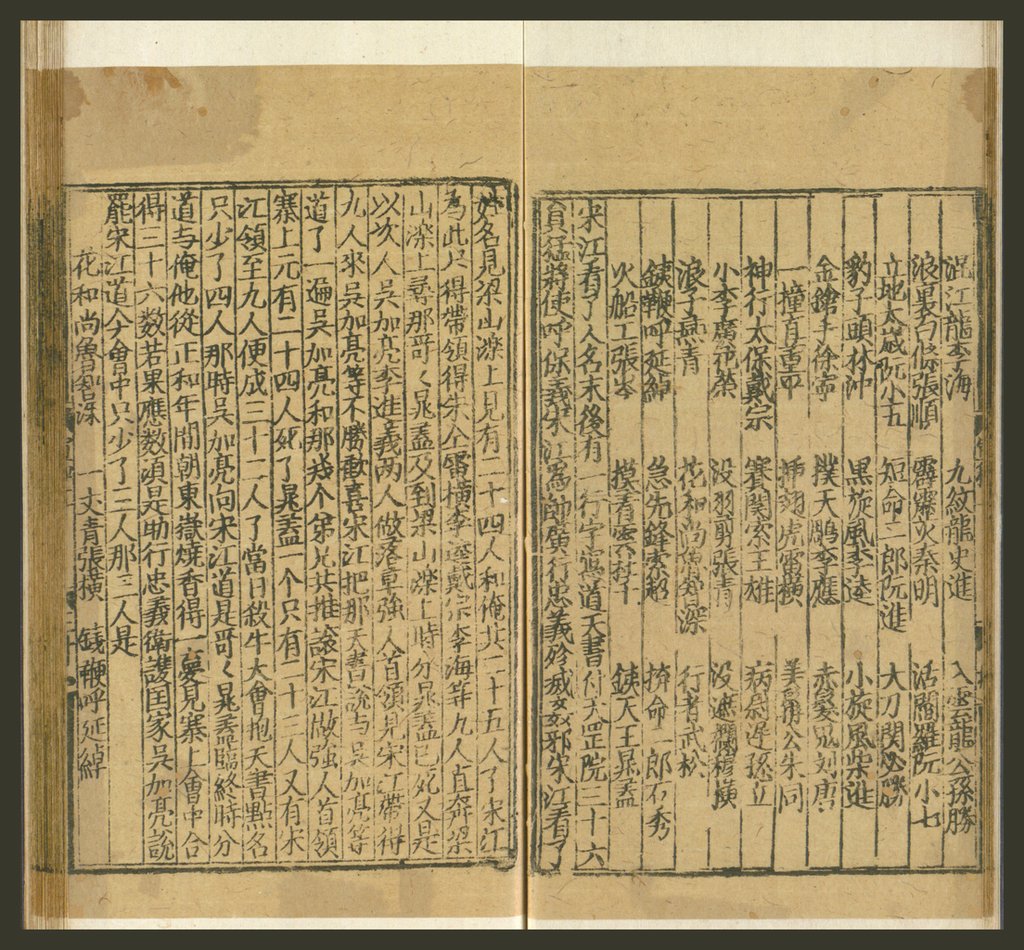 混江龍李海　九紋龍史進　入雲龍公孫勝
浪裏白條張順　霹靂火秦明　活閻羅阮小七
立地太歲阮小五　短命二郎阮進　大刀関必勝
豹子頭林沖　黒旋風李逵　小旋風柴進
金鎗手徐寧　撲天鵰李應　赤髮鬼刘唐
一撞直董平　挿翅虎雷橫　美髯公朱同
神行太保戴宗　賽関索王雄　病尉遲孫立
小李廣花榮　没羽箭張青　没遮攔穆橫
浪子燕青　花和尚魯智深　行者武松
鉄鞭呼延綽　急先鋒索超　拚命一郎石秀
火船工張岑　摸着雲杜千　鉄天王晁盖
宋江看了人名末後有一行字寫道天書付天罡院三十六
員猛將使呼保義宋江為帥廣行忠義殄滅姦邪宋江看了
姓名見梁山濼上見有二十四人和俺共二十五人了宋江
為此只得帶領得朱仝雷橫李逵戴宗李海等九人直奔梁
山濼上尋那哥〻晁盖及到梁山濼上時分晁盖已死又是
以次人吳加亮李進義两人做落草強人首領見宋江帶得
九人來吳加亮等不勝歡喜宋江把那天書說与吳加亮等
道了一遍吳加亮和那幾个弟兄共推讓宋江做強人首領
寨上元有二十四人死了晁盖一个只有二十三人又有宋
江領至九人便成三十二人了當日殺牛大會把天書點名
只少了四人那時吳加亮向宋江道是哥〻晁盖臨終時分
道与俺他從正和年間朝東嶽燒香得一夢見寨上會中合
得三十六数若果應数須是助行忠義衛護国家吳加亮說
罷宋江道今會中只少了三人那三人是
花和尚魯智深　一丈青張橫　鉄鞭呼延綽